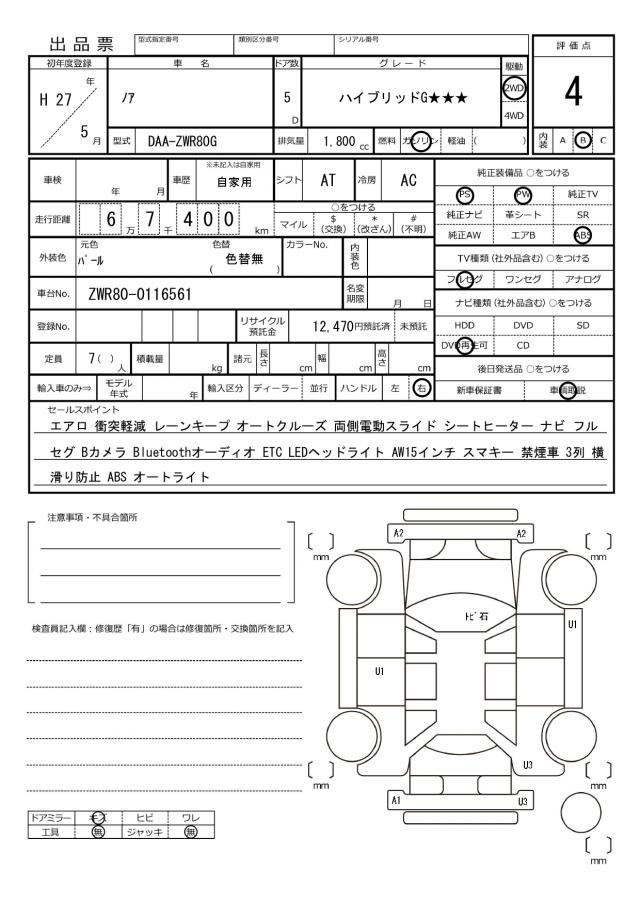 出品票
型式指定番号 類別区分番号 シリアル番号
評価点
4
初年度登録 車名 ドア数 グレード 駆動
H 27 年 5 月
ノア
5 D
ハイブリッドG★★★
2WD
4WD
型式 DAA-ZWR80G 排気量 1,800 cc 燃料 ガソリン 軽油 ( )
内装 A B C
車検 年 月 車歴 ※未記入は自家用 自家用 シフト AT 冷房 AC
走行距離 6 万 7 千 4 0 0 km
○をつける
マイル $(交換) *(改ざん) #(不明)
外装色 元色 パール 色替 ( 色替無 ) カラーNo. 内装色
車台No. ZWR80-0116561 名変期限 月 日
登録No. リサイクル預託金 12,470円預託済 未預託
定員 7( ) 人 積載量 kg 諸元 長さ cm 幅 cm 高さ cm
輸入車のみ⇒ モデル年式 年 輸入区分 ディーラー 並行 ハンドル 左 右
純正装備品 ○をつける
PS PW 純正TV
純正ナビ 革シート SR
純正AW エアB ABS
TV種類(社外品含む) ○をつける
フルセグ ワンセグ アナログ
ナビ種類(社外品含む) ○をつける
HDD DVD SD
DVD再生可 CD
後日発送品 ○をつける
新車保証書 車輌取説
セールスポイント
エアロ 衝突軽減 レーンキープ オートクルーズ 両側電動スライド シートヒーター ナビ フル
セグ Bカメラ Bluetoothオーディオ ETC LEDヘッドライト AW15インチ スマキー 禁煙車 3列 横
滑り防止 ABS オートライト
注意事項・不具合箇所
検査員記入欄：修復歴「有」の場合は修復箇所・交換箇所を記入
A2 A2
[ ] mm [ ] mm
トビ石
U1
U1
U3
[ ] mm [ ] mm
A1 U3
[ ] mm
ドアミラー キズ ヒビ ワレ
工具 無 ジャッキ 無